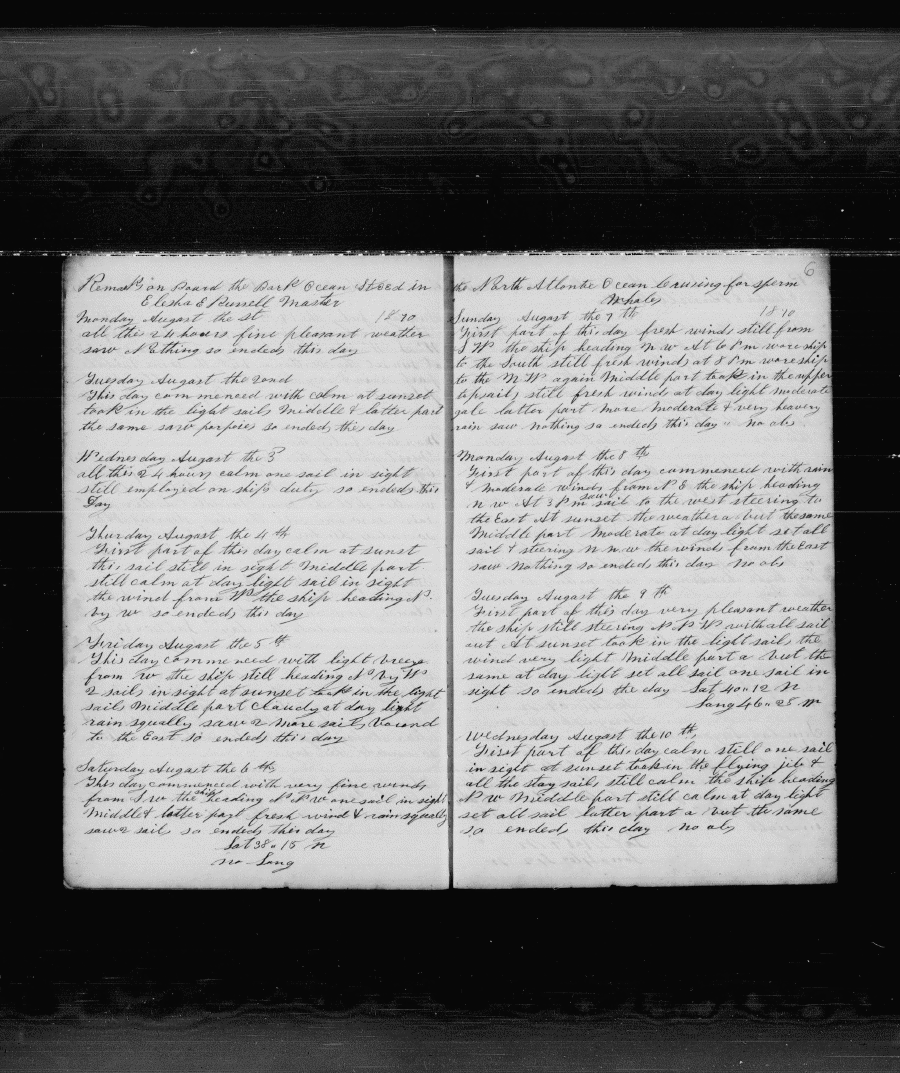 Remarks on Board the Bark Ocean Steed in
Elesha E Russell Master
Monday August the 1st 1870
all the 24 hours fine pleasant weather
saw Nothing so ended this day
Tuesday August the 2ond
This day commenced with calm at sunset
took in the light sails Middle & latter part
the same saw porpoies so ended this day
Wednesday August the 3
all this 24 hours calm one sail in sight
still employed on ships duty so ended this
Day
Thursday August the 4th
First part of this day calm at sunset
this sail still in sight Middle part
still calm at day light sail in sight
the wind from W the ship heading N
by W so ended this day
Friday August the 5th
This day commenced with light breeze
from W the ship still heading N by W
2 sails in sight at sunset took in the light
sails Middle part Claudy at day light
rain squally saw 2 more sails, bound
to the East so ended this day
Saturday August the 6th
This day commenced with very fine winds
from S W the ship heading N N W one sail in sight
Middle & latter part fresh wind & rain squally
saw 2 sail so ended this day
Lat 38 " 15 N
no Long
6
the North Atlantic Ocean Cruising for sperm
Whales
Sunday August the 7th 1870
First part of this day fresh winds still from
S W the ship heading N W At 6 P m wore ship
to the South still fresh winds at 8 P m wore ship
to the N W again Middle part took in the upper
topsails still fresh winds at day light moderate
gale latter part more Moderate & very heavery
rain saw Nothing so ended this day " no obs
Monday August the 8th
First part of this day commenced with rain
& Moderate winds from N E the ship heading
N W At 3 P m saw sail to the west steering to
the East At sunset the weather a but the same
Middle part Moderate at day light set all
sail & steering N N W the winds from the East
saw Nothing so ended this day No obs
Tuesday August the 9th
First part of this day very pleasant weather
the ship still steering N N W with all sail
out At sunset took in the light sails the
wind very light Middle part a but the
same at day light set all sail one sail in
sight so ended the day Lat 40 " 12 N
Long 46 " 25 W
Wednesday August the 10th,
First part of this day calm still one sail
in sight at sunset took in the flying jib &
all the stay sails still calm the ship heading
N W Middle part still calm at day light
set all sail latter part a but the same
so ended this day No obs